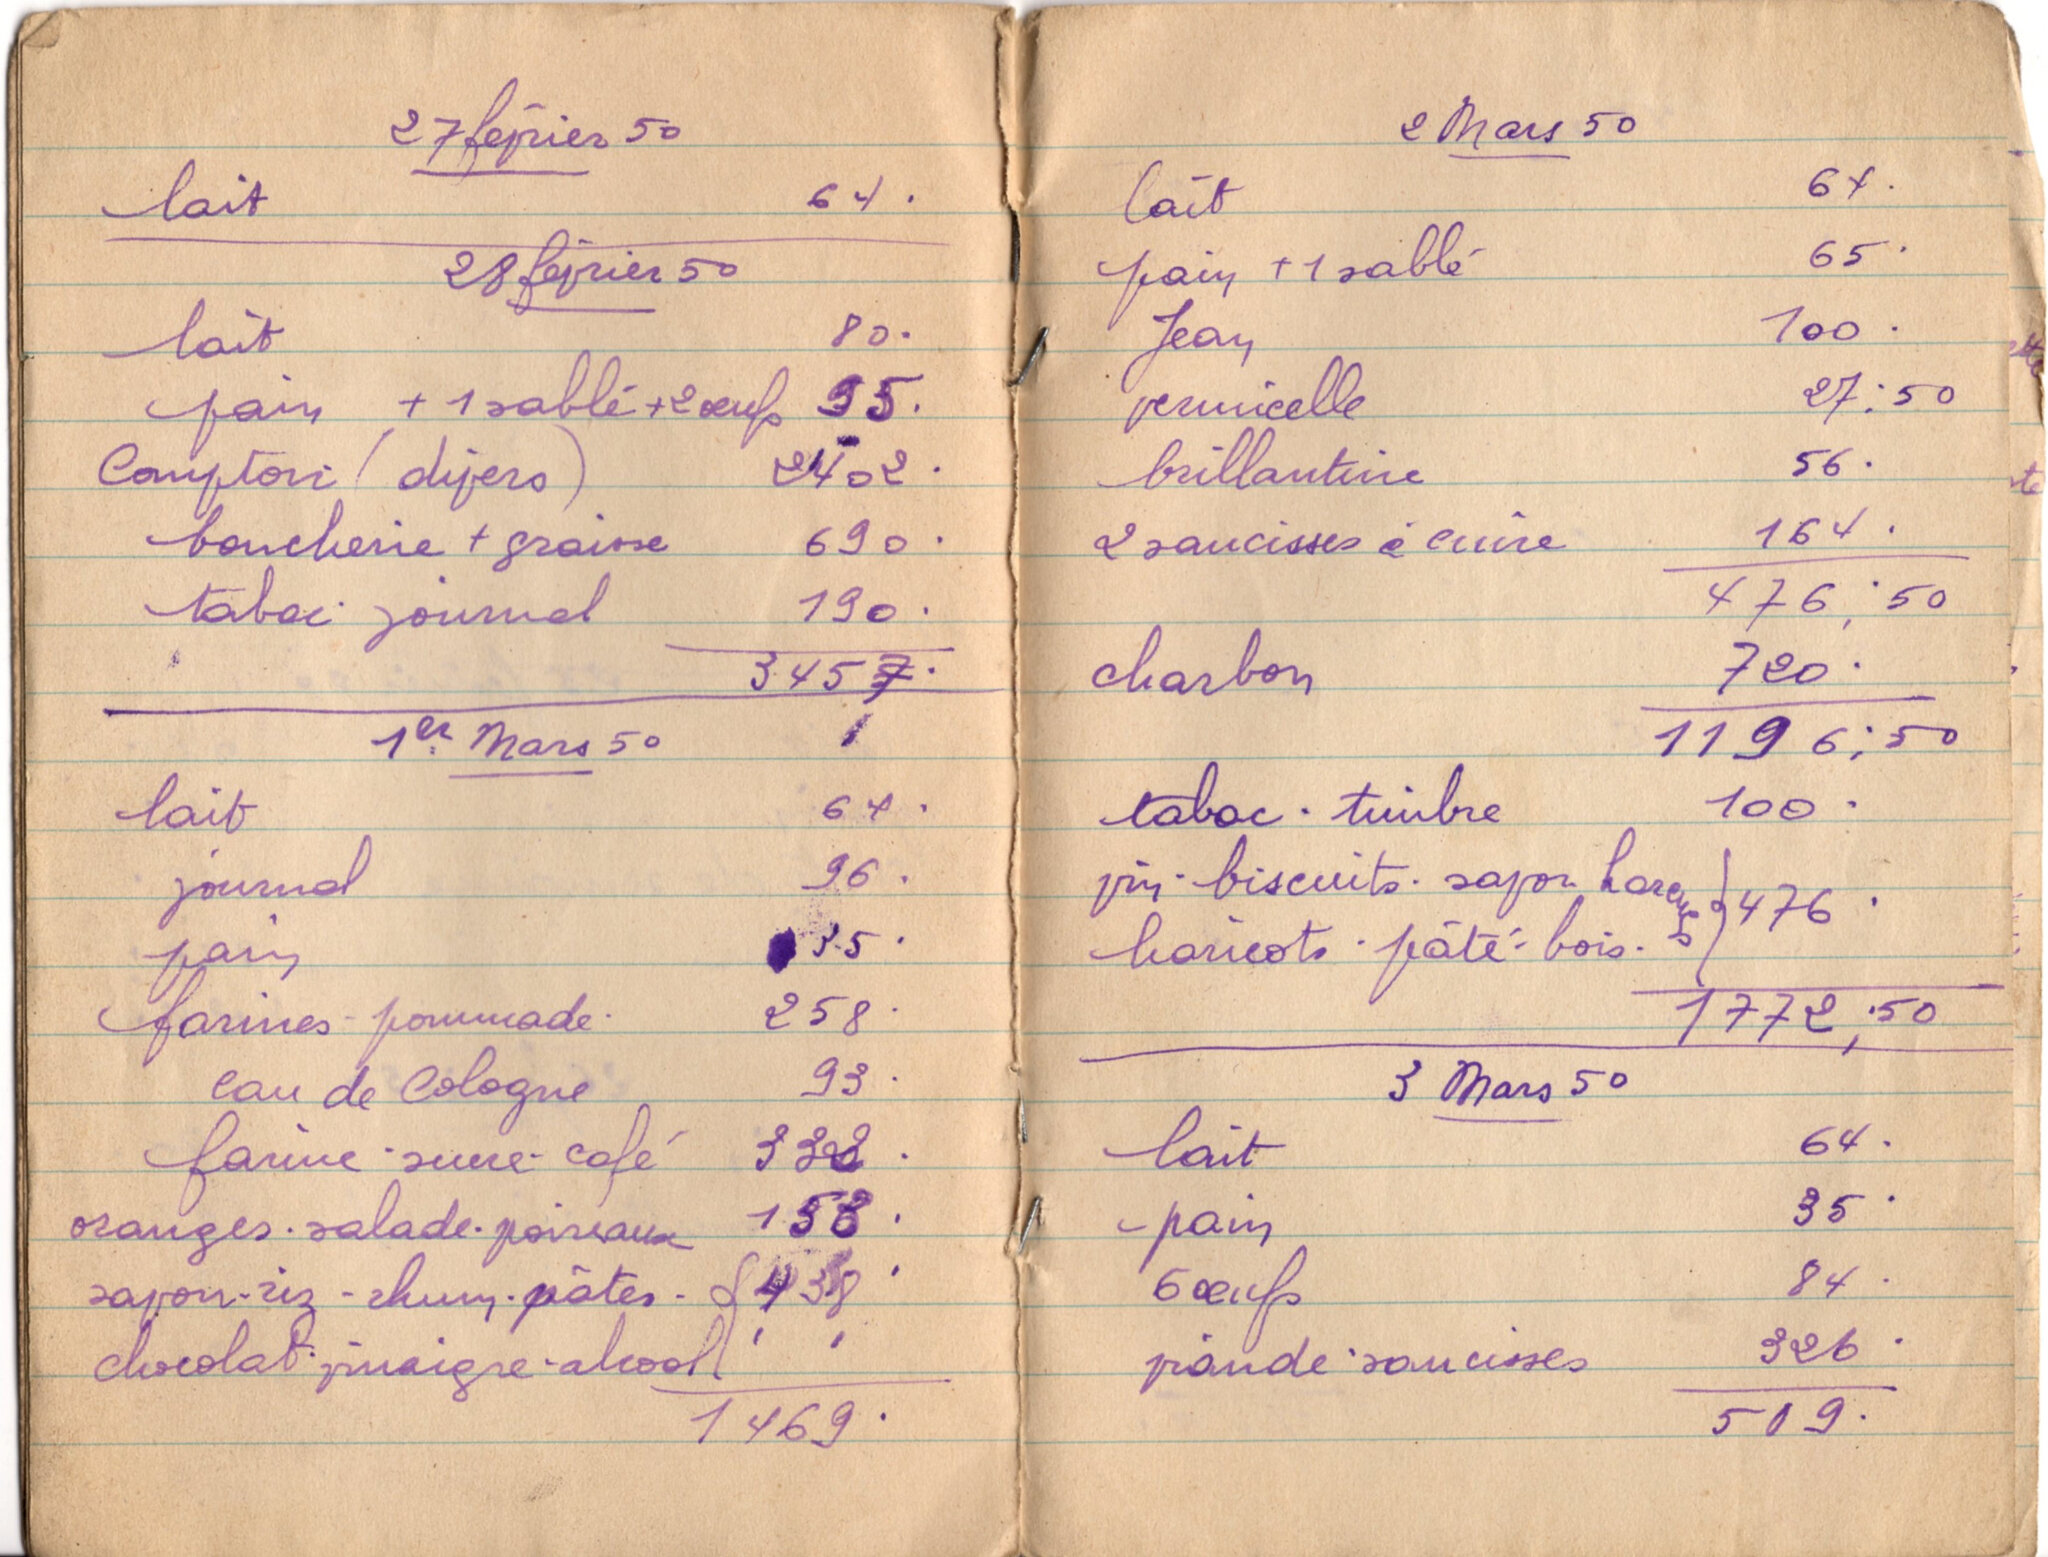 27 février 50
lait 64.
28 février 50
lait 80.
pain + 1 sablé + 2 œufs 95.
Comptoir (divers) 2402.
boucherie + graisse 690.
tabac journal 190.
3457.
1er Mars 50
lait 64.
journal 96.
pain 35.
farines - pommade. 258.
eau de Cologne 93.
farine - sucre - café 332.
oranges. salade. poireaux 153.
savon - riz - rhum. pâtes - 438.
chocolat. vinaigre - alcool
1469.
2 Mars 50
lait 64.
pain + 1 sablé 65.
Jean 100.
vermicelle 27;50
brillantine 56.
2 saucisses à cuire 164.
476,50
charbon 720.
1196;50
tabac. timbre 100.
vin. biscuits. savon harengs 476.
haricots. pâté. bois.
1772,50
3 Mars 50
lait 64.
pain 35.
6 œufs 84.
viande. saucisses 326.
509.